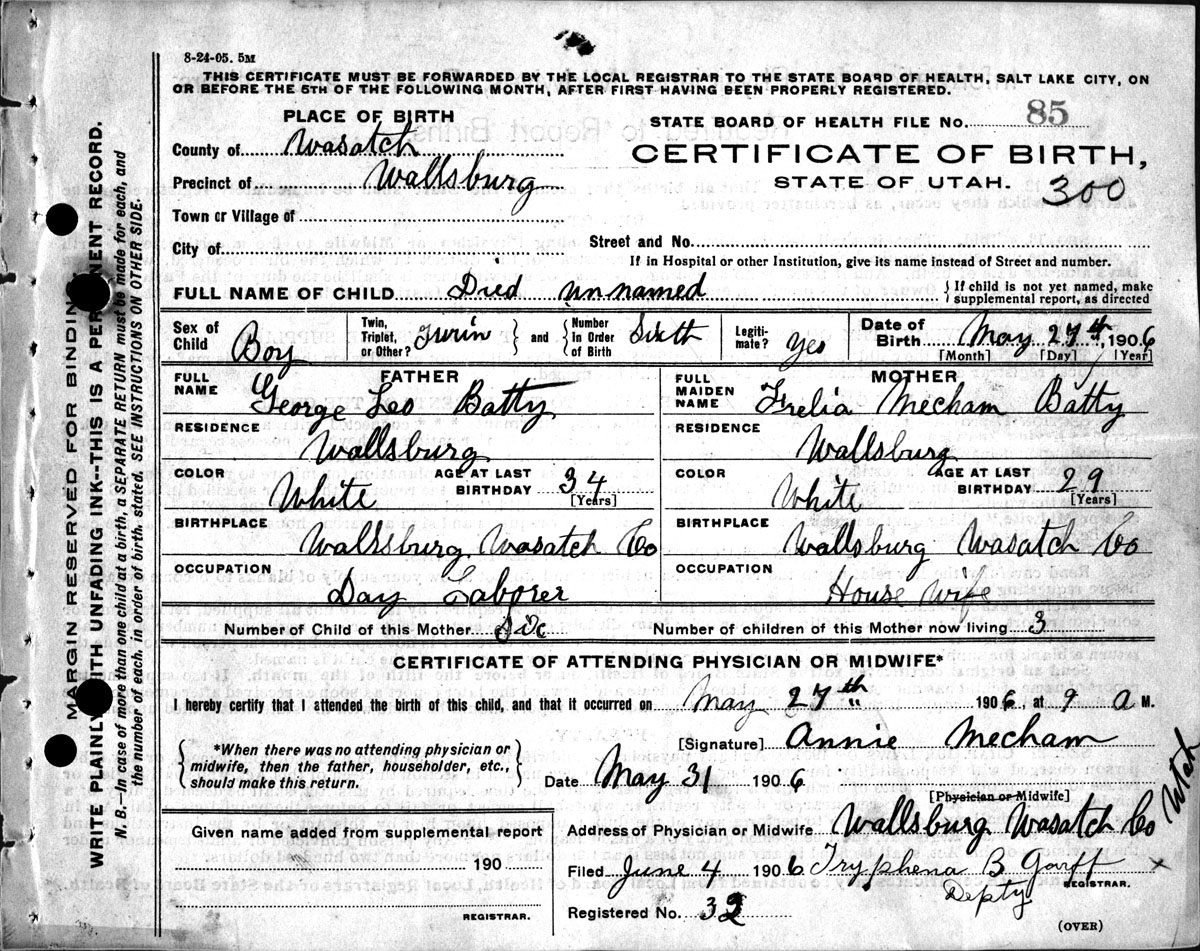 8-24-05. 5M
THIS CERTIFICATE MUST BE FORWARDED BY THE LOCAL REGISTRAR TO THE STATE BOARD OF HEALTH, SALT LAKE CITY, ON
OR BEFORE THE 5TH OF THE FOLLOWING MONTH, AFTER FIRST HAVING BEEN PROPERLY REGISTERED.
PLACE OF BIRTH
STATE BOARD OF HEALTH FILE No. 85
County of Wasatch
CERTIFICATE OF BIRTH,
Precinct of Wallsburg
STATE OF UTAH. 300
Town or Village of
City of
Street and No.
If in Hospital or other Institution, give its name instead of Street and number.
FULL NAME OF CHILD Died unnamed
{ If child is not yet named, make
supplemental report, as directed
Sex of Child Boy
Twin, Triplet, or Other? Twin } and { Number in Order of Birth Sixth
Legiti-mate? Yes
Date of Birth May 27th, 1906
[Month] [Day] [Year]
FATHER
FULL NAME George Leo Batty
RESIDENCE Wallsburg
COLOR White AGE AT LAST BIRTHDAY 34 [Years]
BIRTHPLACE Wallsburg Wasatch Co
OCCUPATION Day Laborer
MOTHER
FULL MAIDEN NAME Frelia Mecham Batty
RESIDENCE Wallsburg
COLOR White AGE AT LAST BIRTHDAY 29 [Years]
BIRTHPLACE Wallsburg Wasatch Co
OCCUPATION House wife
Number of Child of this Mother Six Number of children of this Mother now living 3
CERTIFICATE OF ATTENDING PHYSICIAN OR MIDWIFE*
I hereby certify that I attended the birth of this child, and that it occurred on May 27th 1906, at 9 a M.
{ *When there was no attending physician or
midwife, then the father, householder, etc.,
should make this return. }
[Signature] Annie Mecham
Date May 31 1906
[Physician or Midwife]
Address of Physician or Midwife Wallsburg Wasatch Co Utah
Given name added from supplemental report
190
REGISTRAR.
Filed June 4 1906 Tryphena B Garff
REGISTRAR.
Depty
Registered No. 32
(OVER)
MARGIN RESERVED FOR BINDING
WRITE PLAINLY WITH UNFADING INK--THIS IS A PERMANENT RECORD.
N. B.—In case of more than one child at a birth, a SEPARATE RETURN must be made for each, and
the number of each, in order of birth, stated. SEE INSTRUCTIONS ON OTHER SIDE.